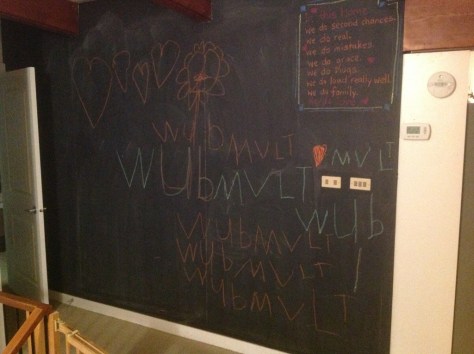 we do second chances.
we do real.
we do mistakes.
we do grace.
we do hugs.
we do loud really well.
we do family.
WUbMVLT
MVLT
WUbMVLT
WUb
WUbMVLT
WUbMVLT
WUbMVLT